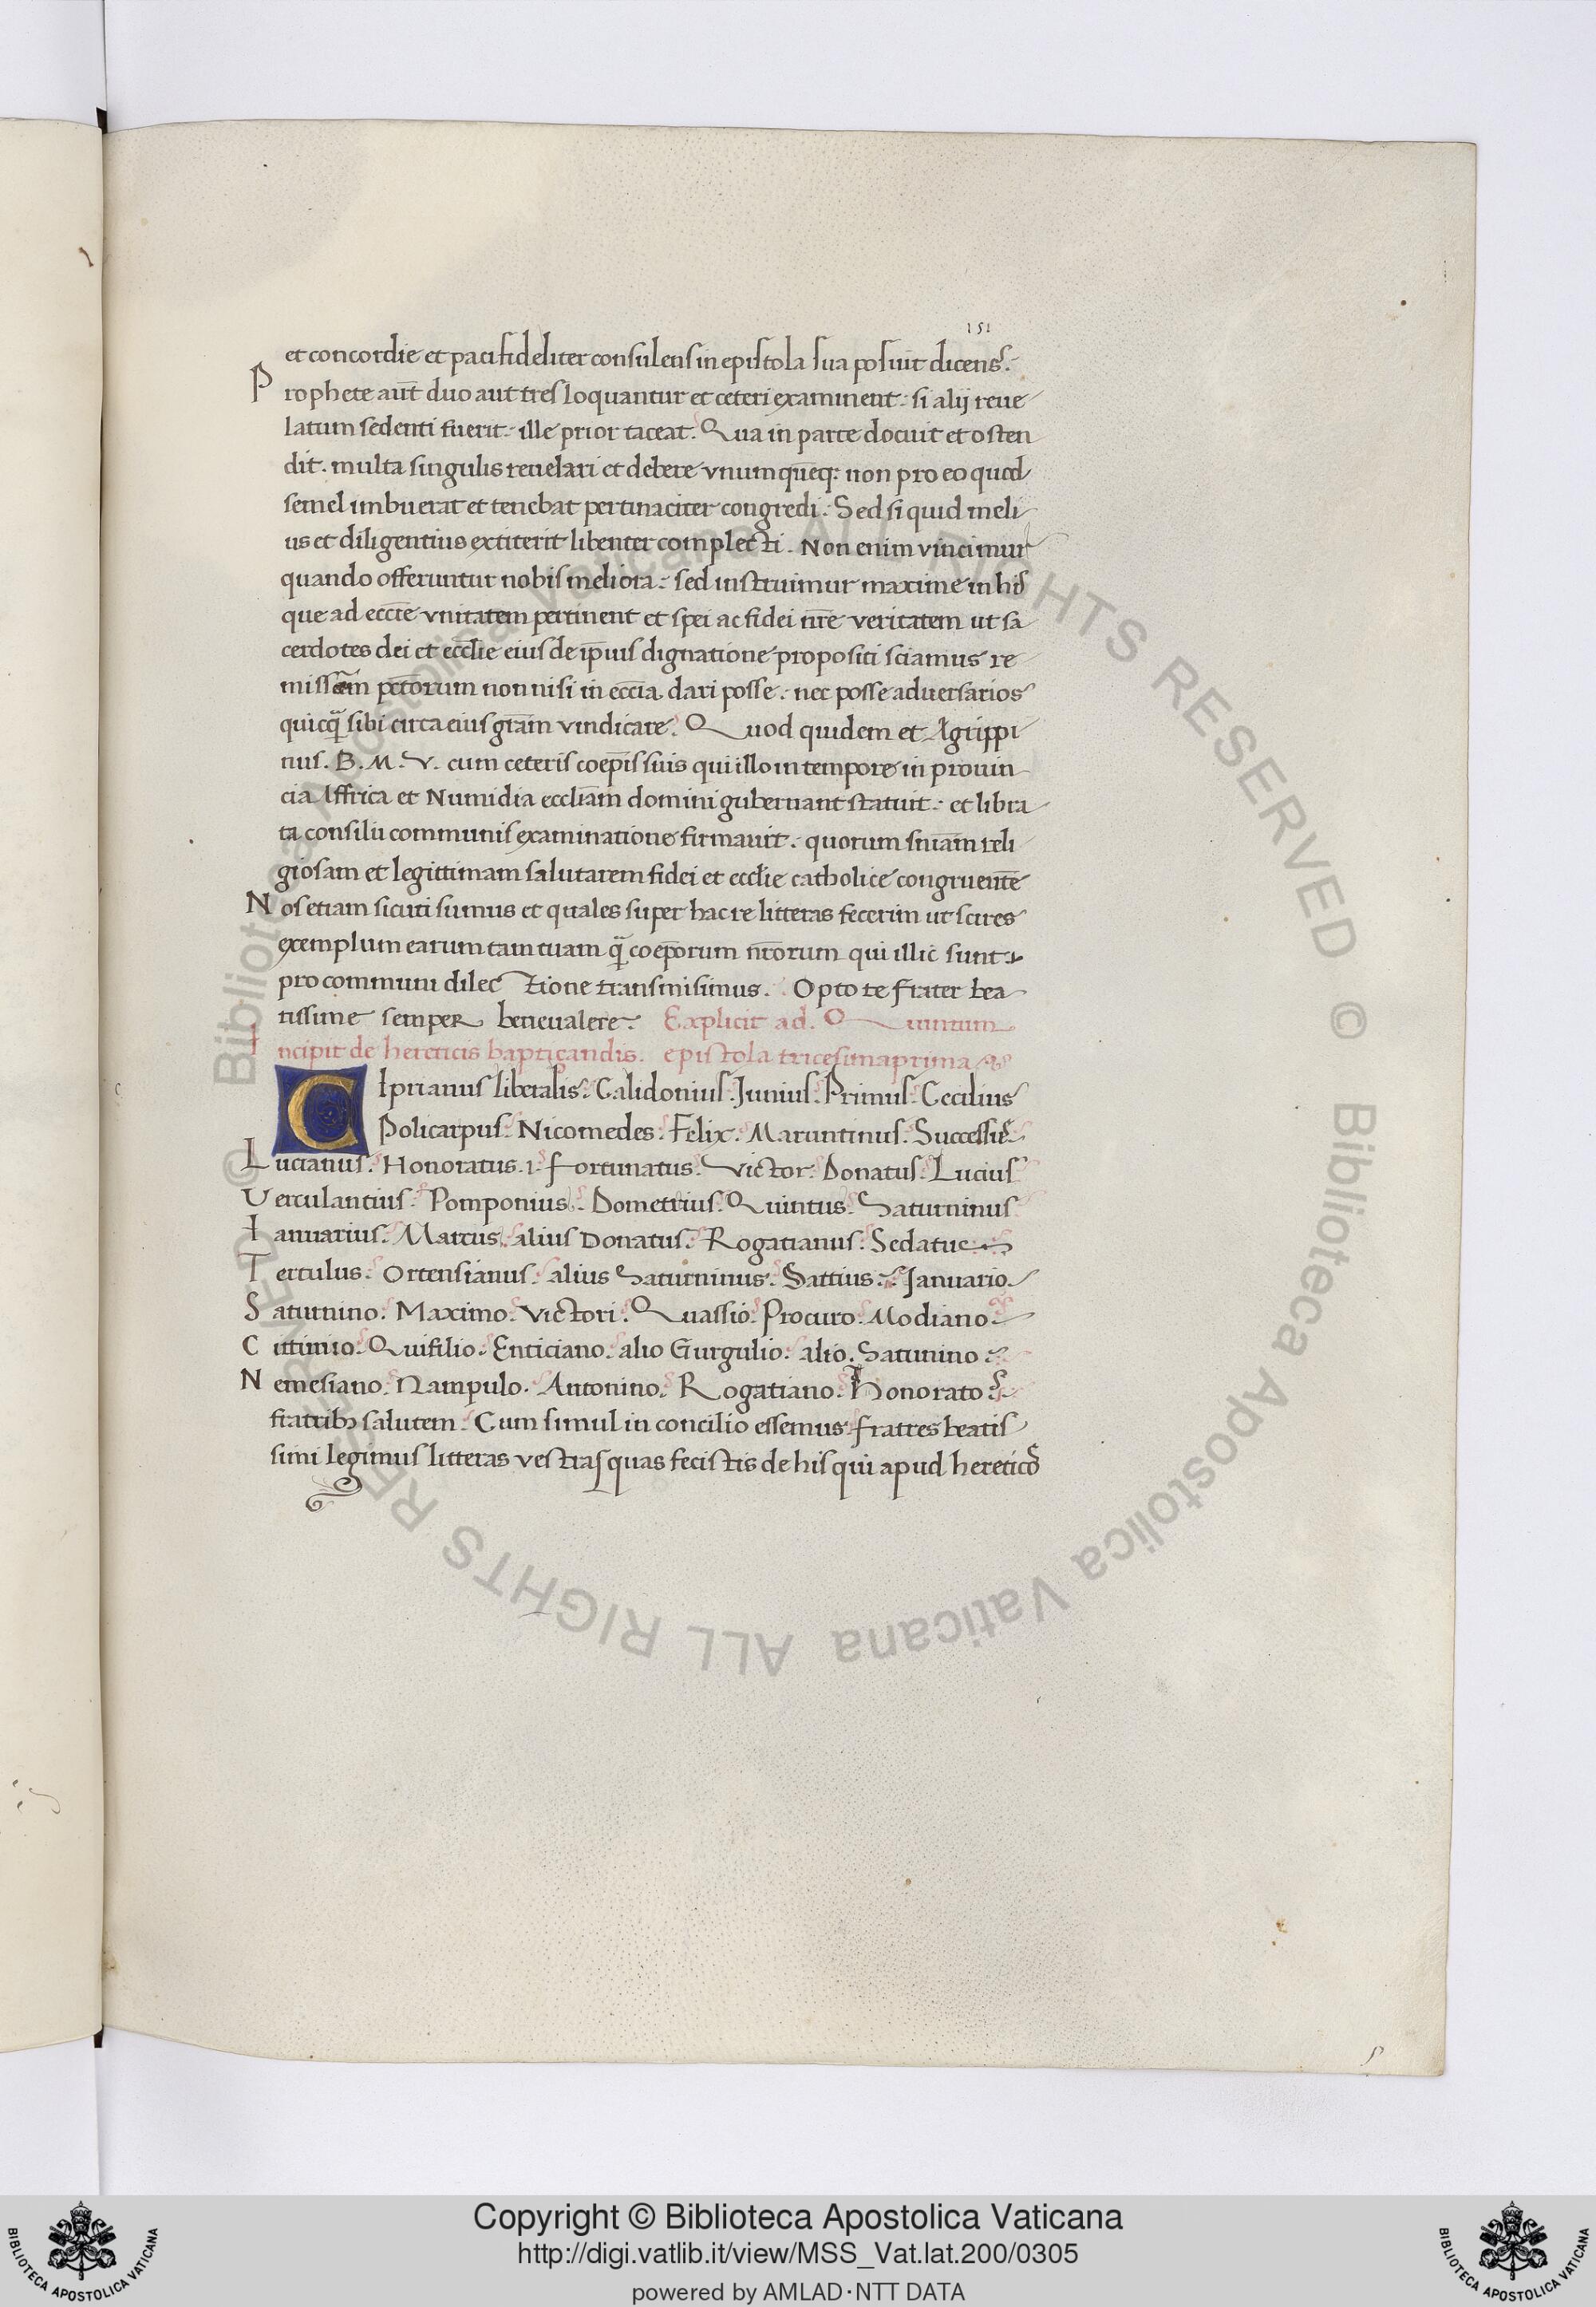 151
et concordie et paci fideliter consulens in epistola sua posuit dicens.
Prophete aut̄ duo aut tres loquantur et ceteri examinent. si alij reue
latum sedenti fuerit. ille prior taceat. Qua in parte docuit et osten
dit. multa singulis reuelari et debere vnumquēq; non pro eo quod
semel imbuerat et tenebat pertinaciter congredi. Sed si quid meli
us et diligentius extiterit libenter complecti. Non enim vincimur
quando offeruntur nobis meliora. sed instruimur maxime in his
que ad eccīe vnitatem pertinent et spei ac fidei nr̄e veritatem ut sa
cerdotes dei et eccl̄ie eius de ip̄ius dignatione propositi sciamus re
missēm pctorum non nisi in eccīa dari posse. nec posse aduersarios
quicq̄ sibi circa eius grām vindicare. Quod quidem et Agrippi
nus. B. M. V. cum ceteris coep̄is suis qui illo in tempore in prouin
cia Affrica et Numidia eccliām domini gubernant statuit. et libra
ta consilii communis examinatione firmauit. quorum sniām reli
giosam et legittimam salutarem fidei et eccl̄ie catholice congruentē
Nos etiam sicuti sumus et quales super hac re litteras fecerim ut scires
exemplum earum tam tuam q̄ coep̄orum nr̄orum qui illic sunt
pro communi dilectione transmisimus. Opto te frater bea
tissime semper bene ualere. Explicit ad. Quintum
Incipit de hereticis baptizandis. epistola tricesima prima
CIprianus liberalis. Calidonius. Junius. Primus. Cecilius
Policarpus. Nicomedes. Felix. Maruntinus. Successus
Lucianus. Honoratus. Fortunatus. Victor. Donatus. Lucius
Verculantius. Pomponius. Dometrius. Quintus. Saturninus
Ianuarius. Marcus. alius Donatus. Rogatianus. Sedatus
Tertulus. Ortensianus. alius Saturninus. Sattius. Januario.
Saturnino. Maximo. Victori. Quassio. Procuro. Modiano.
Cittinio. Quifilio. Enticiano. alio Gurgulio. alio. Saturnino
Nemesiano. Nampulo. Antonino. Rogatiano. Honorato
fratrib; salutem. Cum simul in concilio essemus fratres beatis
simi legimus litteras vestras quas fecistis de his qui apud hereticos
© Biblioteca Apostolica Vaticana ALL RIGHTS RESERVED © Biblioteca Apostolica Vaticana ALL RIGHTS RESERVED
Copyright © Biblioteca Apostolica Vaticana
http://digi.vatlib.it/view/MSS_Vat.lat.200/0305
powered by AMLAD·NTT DATA
BIBLIOTECA APOSTOLICA VATICANA
BIBLIOTECA APOSTOLICA VATICANA